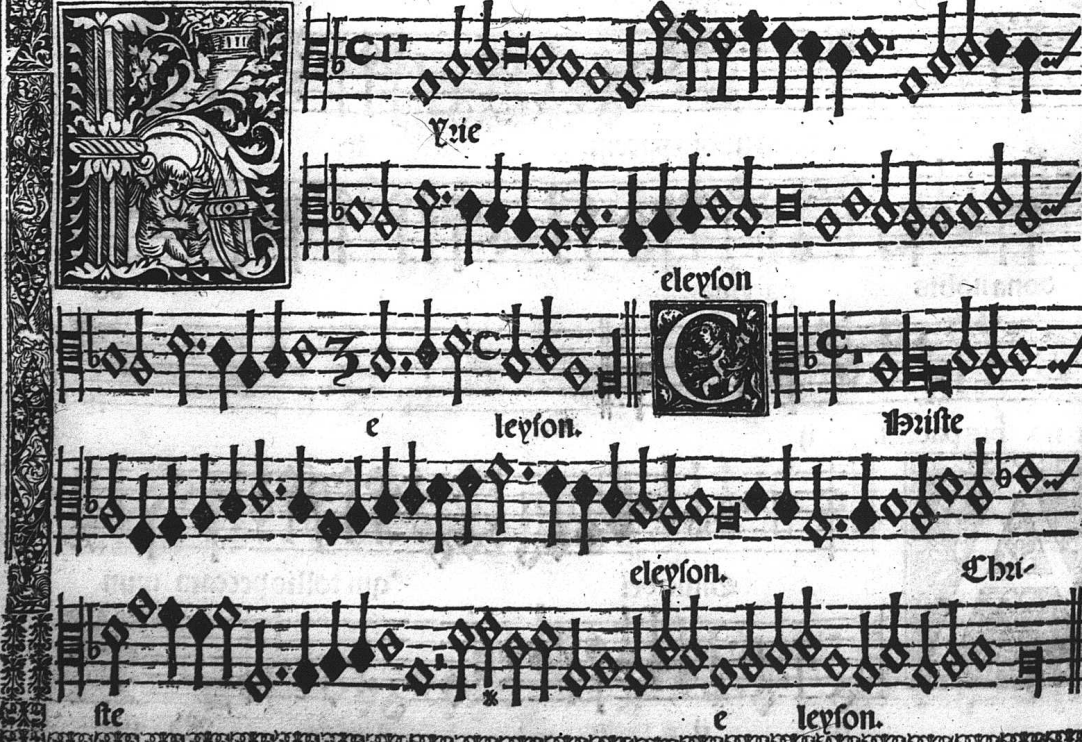 Kyrie
eleyson
e leyson. Christe
eleyson. Chri-
ste e leyson.